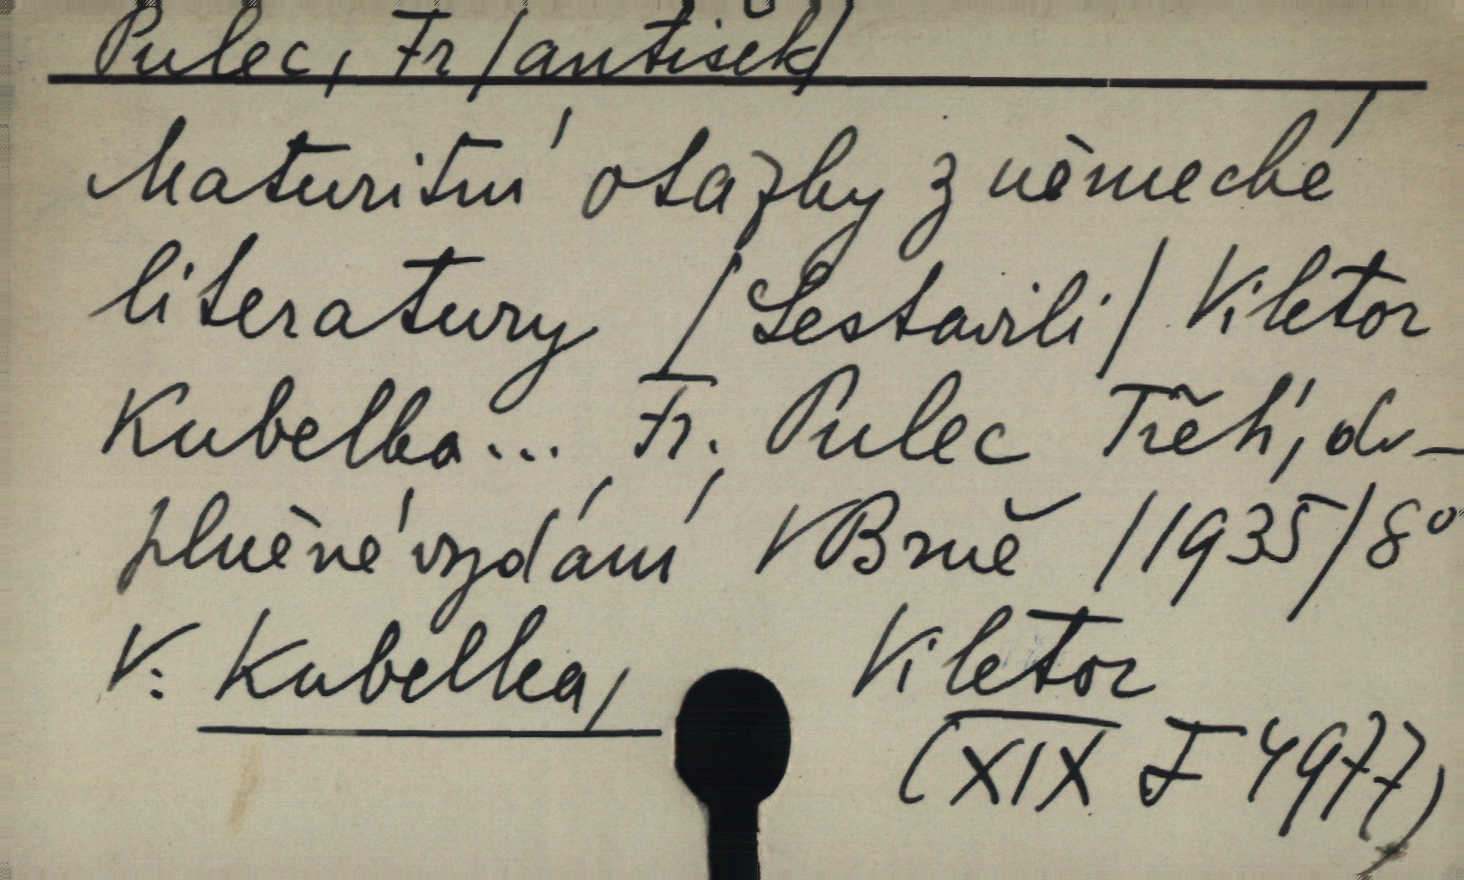 Pulec, Fr/antišek/
Maturitní otázky z německé
literatury /Sestavili/ Viktor
Kubelka... Fr. Pulec Třetí, do-
plněné vydání, V Brně /1935/ 8°
V: Kubelka, Viktor
(XIX F 4977)